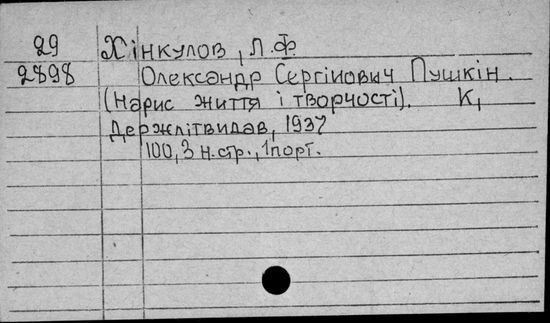 29 Хінкулов, Л.Ф.
2898 Олександр Сергійович Пушкін.
(Нарис життя і творчості). К,
Держлітвидав, 1937
100, 3 н. стр., 1 порт.